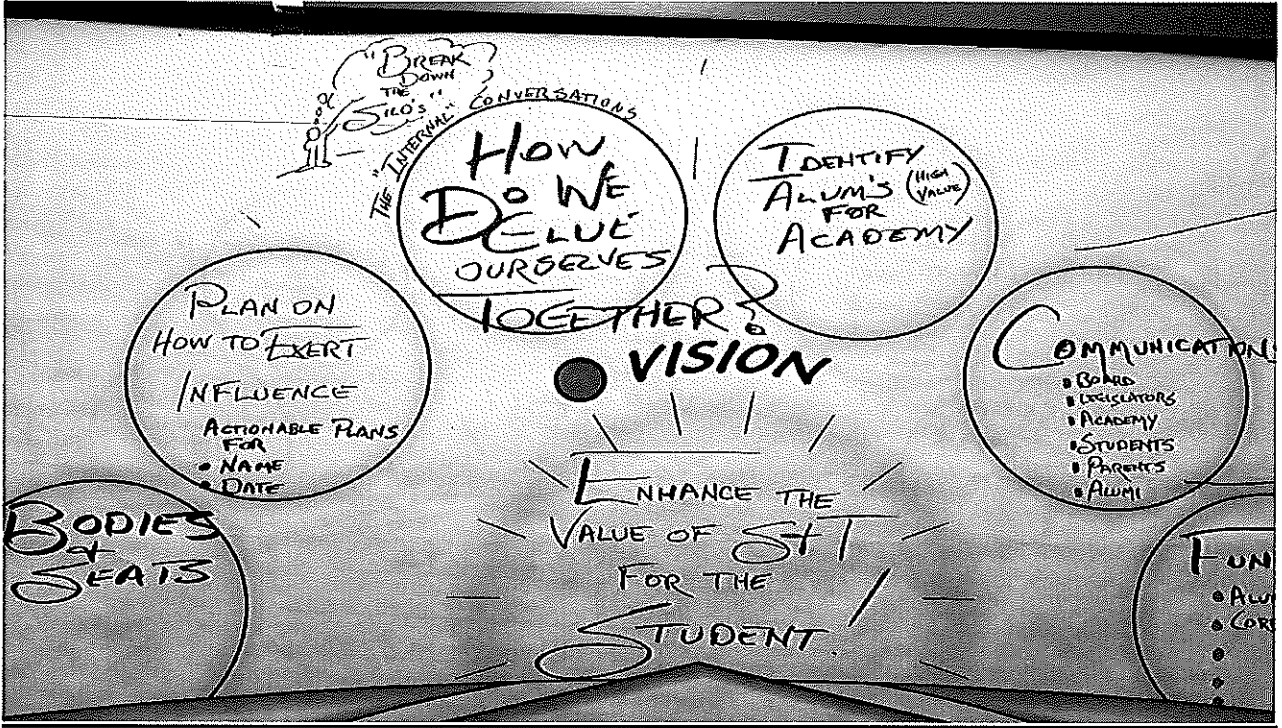 "BREAK
DOWN
THE
SILO'S"
THE "INTERNAL" CONVERSATIONS
HOW
DO WE
GLUE
OURSELVES
TOGETHER?
IDENTIFY
ALUM'S (HIGH VALUE)
FOR
ACADEMY
PLAN ON
HOW TO EXERT
INFLUENCE
ACTIONABLE PLANS
FOR
• NAME
• DATE
COMMUNICATION
• BOARD
• LEGISLATORS
• ACADEMY
• STUDENTS
• PARENTS
• ALUMI
BODIES
&
SEATS
VISION
ENHANCE THE
VALUE OF S+T
FOR THE
STUDENT!
FUN
• ALU
• COR